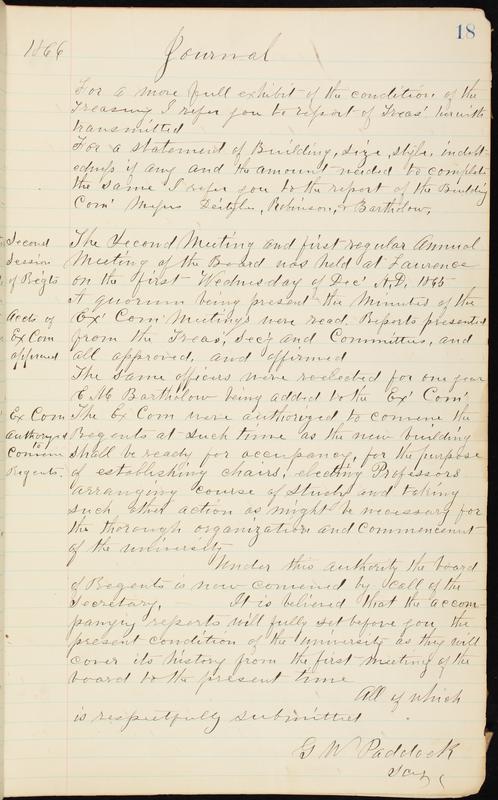 18
1866 Journal
For a more full exhibit of the condition of the
Treasury I refer you to report of Treas' herewith
transmitted
For a statement of Building, size, style, indebt-
edness if any and the amount needed to complete
the same I refer you to the report of the Building
Com' Messrs Deitzler, Robinson, & Bartholow.
Second
Session
of Reg'ts
The Second Meeting and first regular Annual
Meeting of the Board was held at Laurence
on the first Wednesday of Dec' A.D, 1865
A quorum being present the Minutes of the
Acts of
Ex Com
approved
Ex' Com' Meetings were read. Reports presented
from the Treas, Sec'y and Committees, and
all approved, and affirmed
The same officers were reelected for one year
E. M. Bartholow being added to the Ex' Com'
Ex Com
Authorized
to
Convene
Regents.
The Ex Com were authorized to convene the
Regents at such time as the new building
shall be ready for occupancy, for the purpose
of establishing chairs, electing Professors
arranging course of Study and taking
such other action as might be necessary for
the thorough organization and commencement
of the university
Under this authority the board
of Regents is now convened by call of the
Secretary. It is believed that the accom-
panying reports will fully set before you the
present condition of the University as they will
cover its history from the first meeting of the
board to the present time
All of which
is respectfully submitted
G W Paddock
Secy